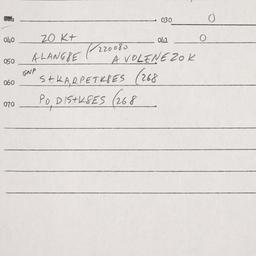 030 0
040 20 K+ 041 0
050 ALANGBE (220080 A VOLENEZOK
060 GNP S+KARPETKBES (268
070 PO, DIS+KBES (268